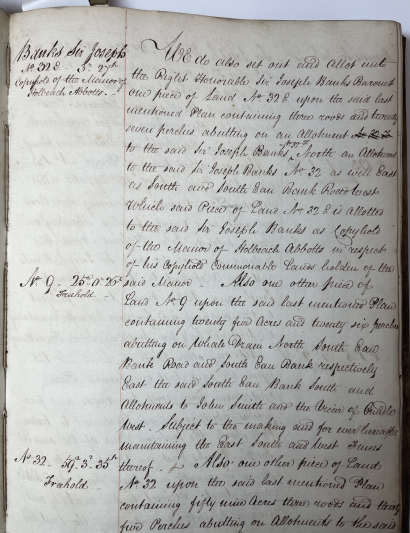 Banks Sir Joseph
No. 32 E - 3r. 27p.
Copyhold of the Manor of
Holbeach Abbotts. -
We do also set out and allot unto
the Right Honorable Sir Joseph Banks Baronet
one piece of Land No. 32 E upon the said last
mentioned Plan containing three roods and twenty
seven perches abutting on an Allotment
to the said Sir Joseph Banks North an Allotment
to the said Sir Joseph Banks No. 32 as well East
as South and South Eau Bank Road West
Which said Piece of Land No. 32 E is allotted
to the said Sir Joseph Banks as Copyhold
of the Manor of Holbeach Abbotts in respect
of his Copyhold Commonable Lands holden of the
said Manor - Also one other piece of
No. 9 - 25a. 0r. 26p.
Freehold -
Land No. 9 upon the said last mentioned Plan
containing twenty five Acres and twenty six perches
abutting on Whale Drain North South Eau
Bank Road and South Eau Bank respectively
East the said South Eau Bank South and
Allotments to John Smith and the Vicar of
West. Subject to the making and for ever hereafter
maintaining the East South and West Fences
thereof. - Also one other piece of Land
No. 32 - 59a. 3r. 35p.
Freehold
No. 32 upon the said last mentioned Plan
containing fifty nine Acres three roods and thirty
five Perches abutting on Allotments to the said